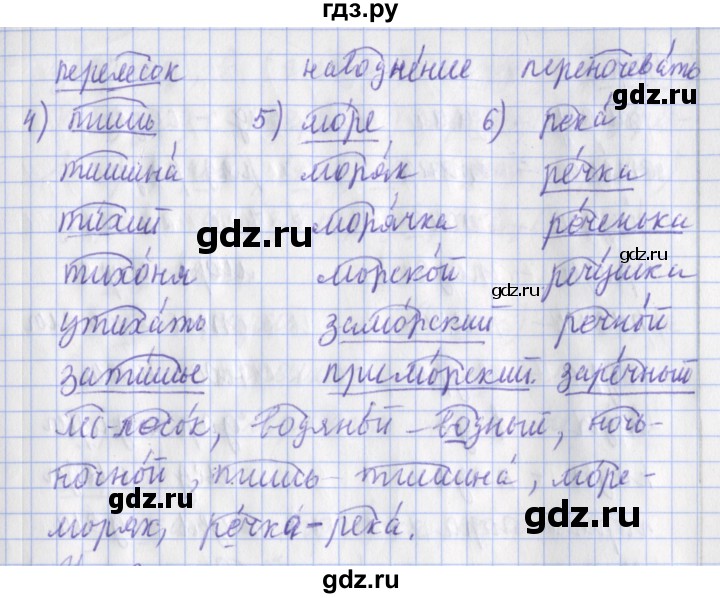 гдз.ру
перелесок наводнение переночевать
gdz.ru
4) тишь 5) мо́ре 6) река́
тишина́ моря́к ре́чка
ти́хий моря́чка ре́ченька
gdz.ru
gdz.ru
тихо́ня морско́й речу́шка
gdz.ru
утиха́ть замо́рский речно́й
зати́шье примо́рский. заре́чный
лес-лесо́к, водяно́й - во́дный, ночь-
ночно́й, тишь - тишина́, мо́ре-
gdz.ru
моряк, ре́чка - река́.
gdz.ru
gdz.ru